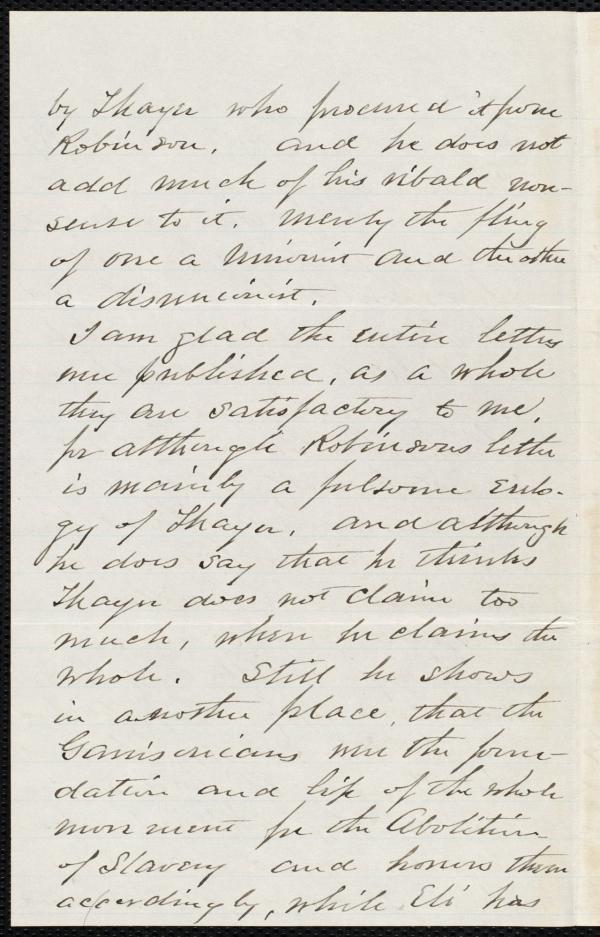 by Thayer who procured it from
Robinson. and he does not
add much of his ribald non-
sense to it. merely the fling
of one a Unionist and the other
a disunionist.
I am glad the entire letters
were published, as a whole
they are satisfactory to me,
for although Robinsons letter
is mainly a fulsome eulo-
gy of Thayer, and although
he does say that he thinks
Thayer does not claim too
much, when he claims the
whole. Still he shows
in another place, that the
Garrisonians were the foun-
dation and life of the whole
movement for the Abolition
of Slavery and honors them
accordingly, while Eli has